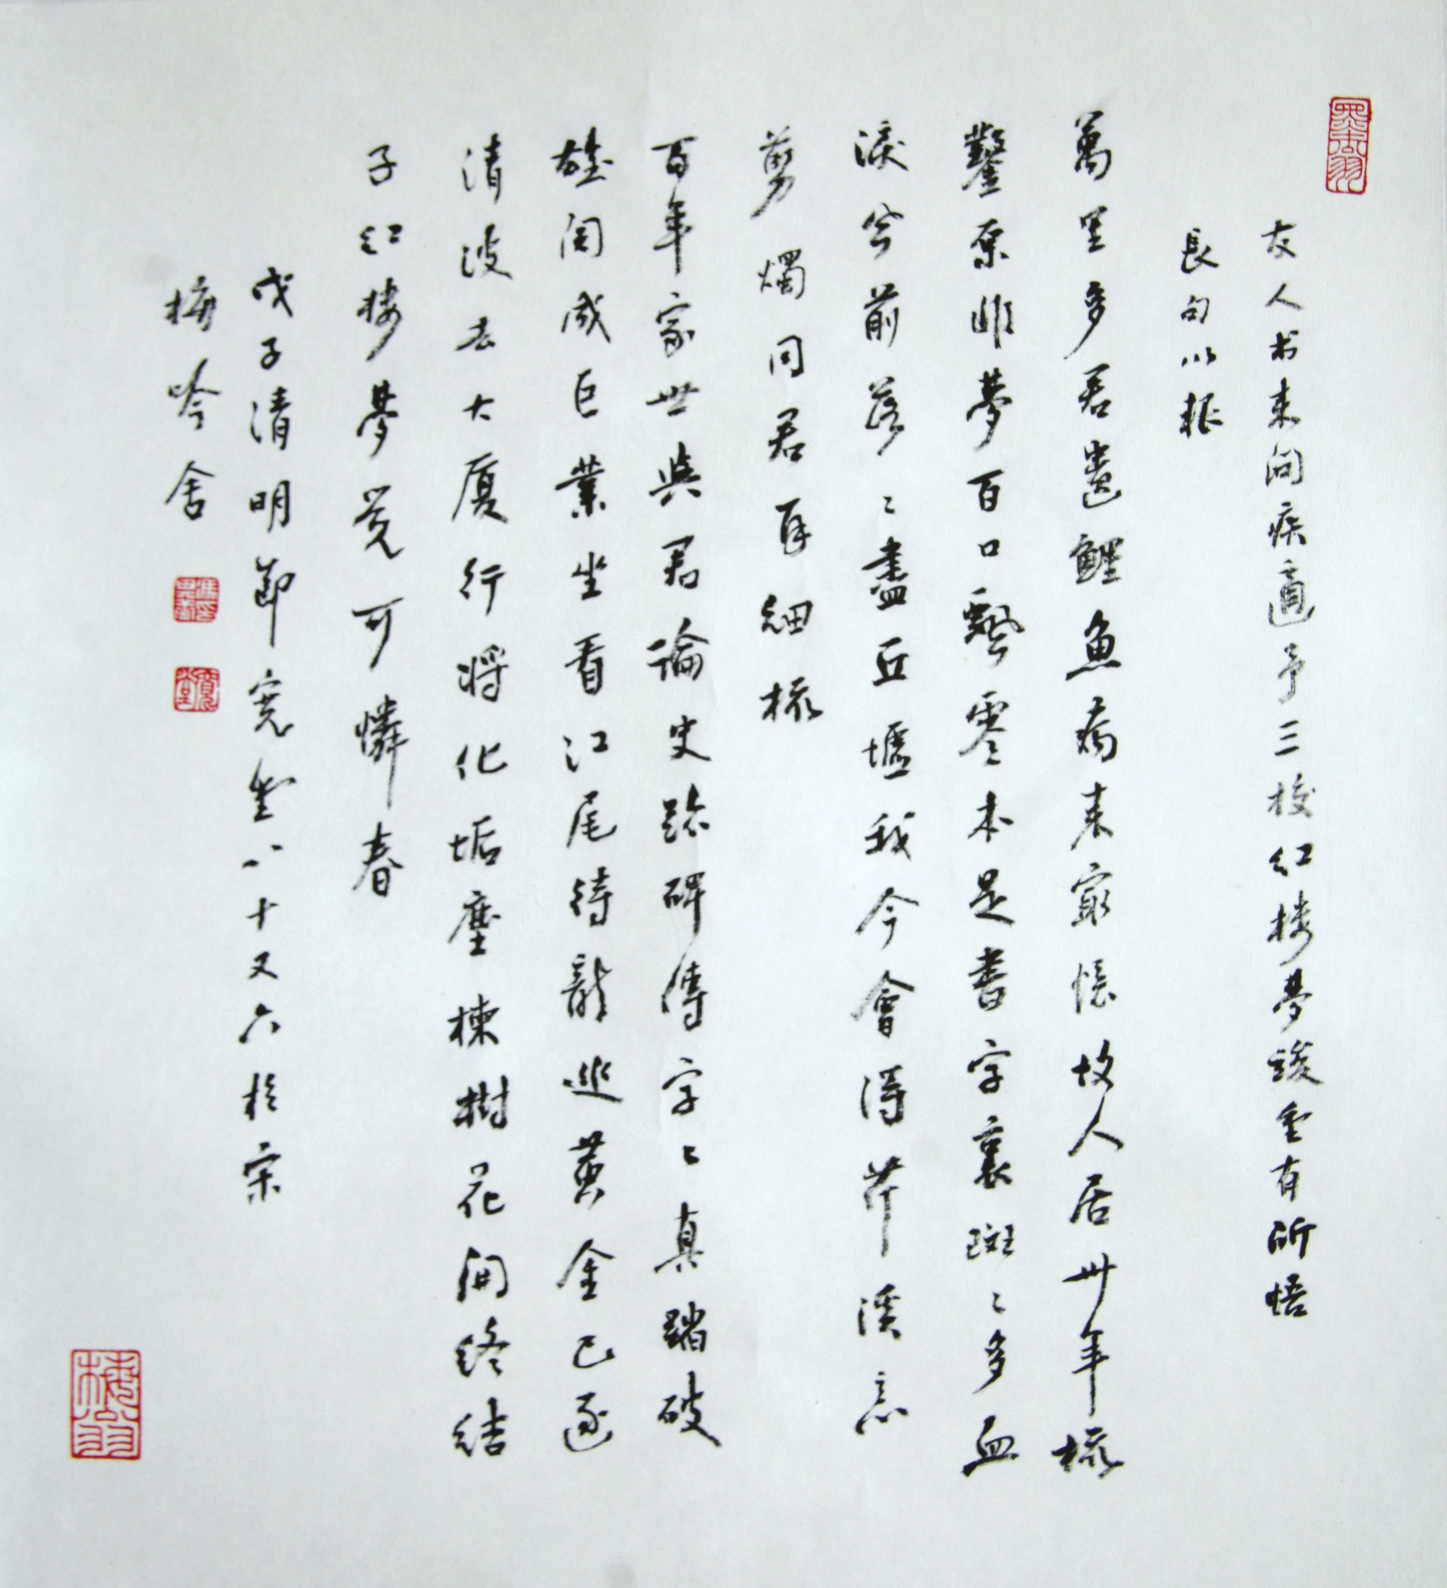 友人书来問疾適予三校红楼夢竣重有所悟
長句以報
萬里多君遺鯉魚病来最憶故人居卅年梳
鑿原非夢百口飄零本是書字裏斑〻多血
淚前落〻盡丘墟我今會得芹溪意
剪燭同君再细梳
百年家世與君論史跡碑傳字〻真踏破
雄関成巨業坐看江尾待龍巡黄金已逐
清波去大厦行將化垢塵楝樹花開終結
子红楼夢覺可憐春
戊子清明節寬堂八十又六於京
梅吟舍
寬堂
梅翁